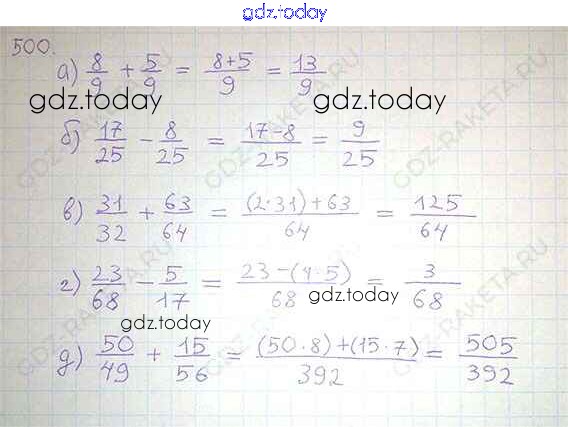 gdz.today
500.
а) 8/9 + 5/9 = (8+5)/9 = 13/9
gdz.today gdz.today
б) 17/25 - 8/25 = (17-8)/25 = 9/25
в) 31/32 + 63/64 = ((2·31)+63)/64 = 125/64
г) 23/68 - 5/17 = (23-(4·5))/68 = 3/68
gdz.today
gdz.today
д) 50/49 + 15/56 = ((50·8)+(15·7))/392 = 505/392
GDZ-RAKETA.RU